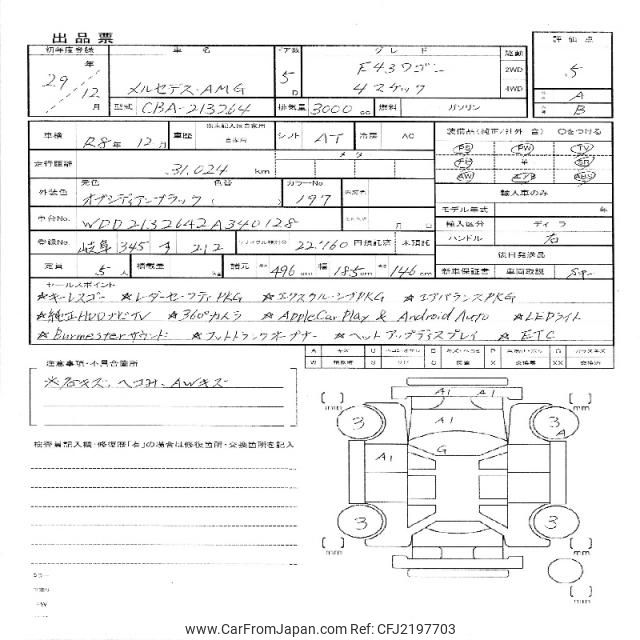 出品票
初年度登録 車名 ドア数 グレード 駆動 評価点
29年 / 12月 メルセデス・AMG 5D E43ワゴン 2WD 5
4マチック 4WD A
型式 CBA-213264 排気量 3000cc 燃料 ガソリン B
車検 R8年 12月 車歴 自家用 シフト AT 冷房 AC 装備品(純正/社外 含) ○をつける
PS PW TV
走行距離 31,024 km SR
AW エアB ABS
外装色 元色 色替 カラーNo
オブシディアンブラック ( ) 197 輸入車のみ
モデル年式 年
車台No. WDD2132642A340128 月 日 輸入区分 ディーラ
登録No. 岐阜 345 す 212 リサイクル預託金 22,460 円預託済 未預託 ハンドル 右
後日発送品
定員 5人 積載量 kg 諸元 長 496cm 幅 185cm 高 146cm 新車保証書 車両取説
セールスポイント
☆キーレスゴー ☆レーダーセーフティPKG ☆エクスクルーシブPKG ☆エアバランスPKG
☆純正HDDナビTV ☆360°カメラ ☆AppleCar Play & Android Auto ☆LEDライト
☆Burmesterサウンド ☆フットトランクオープナー ☆ヘッドアップディスプレイ ☆ETC
注意事項・不具合箇所
※石キズ、ヘコみ、AWキズ
検査員記入欄・修復歴「有」の場合は修復箇所・交換箇所を記入
A1 A1
mm mm
3 A1 3
A
G
A1
3 3
mm mm
mm
www.CarFromJapan.com Ref: CFJ2197703